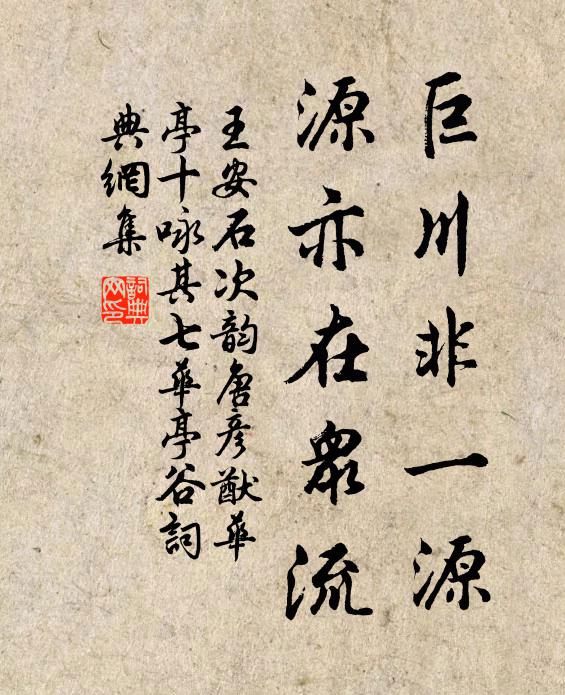 巨川非一源
源亦在衆流
王安石次韵唐彦猷華
亭十咏其七華亭谷詞
典網集
詞典網印